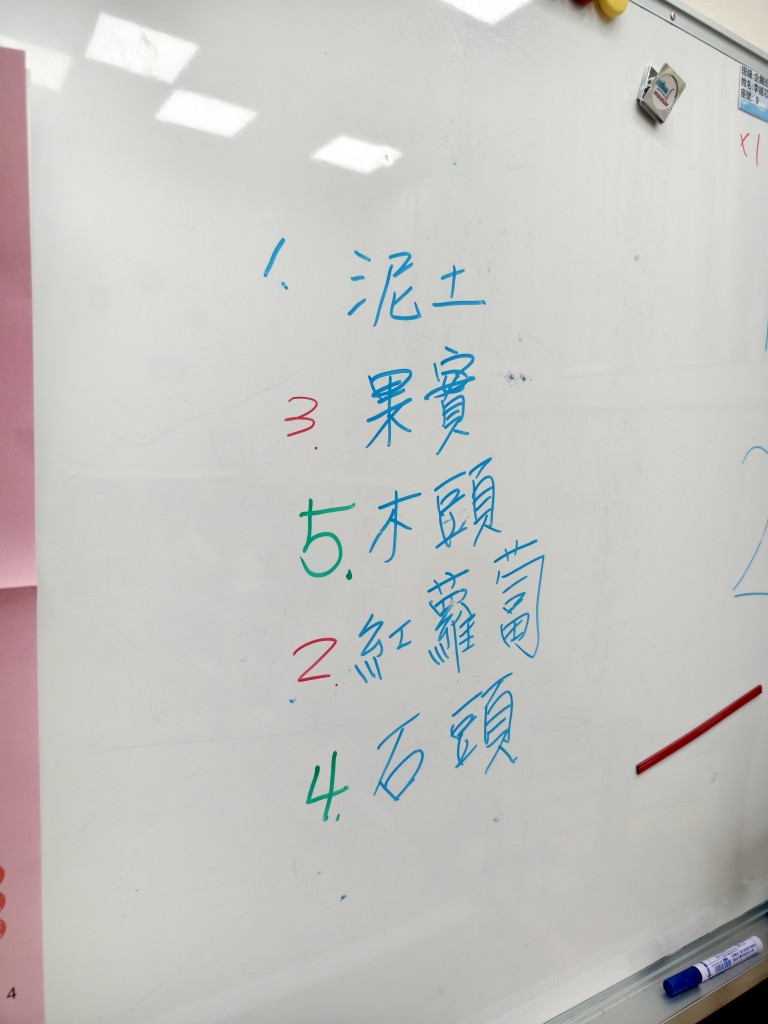 1. 泥土
3. 果實
5. 木頭
2. 紅蘿蔔
4. 石頭
x1
4